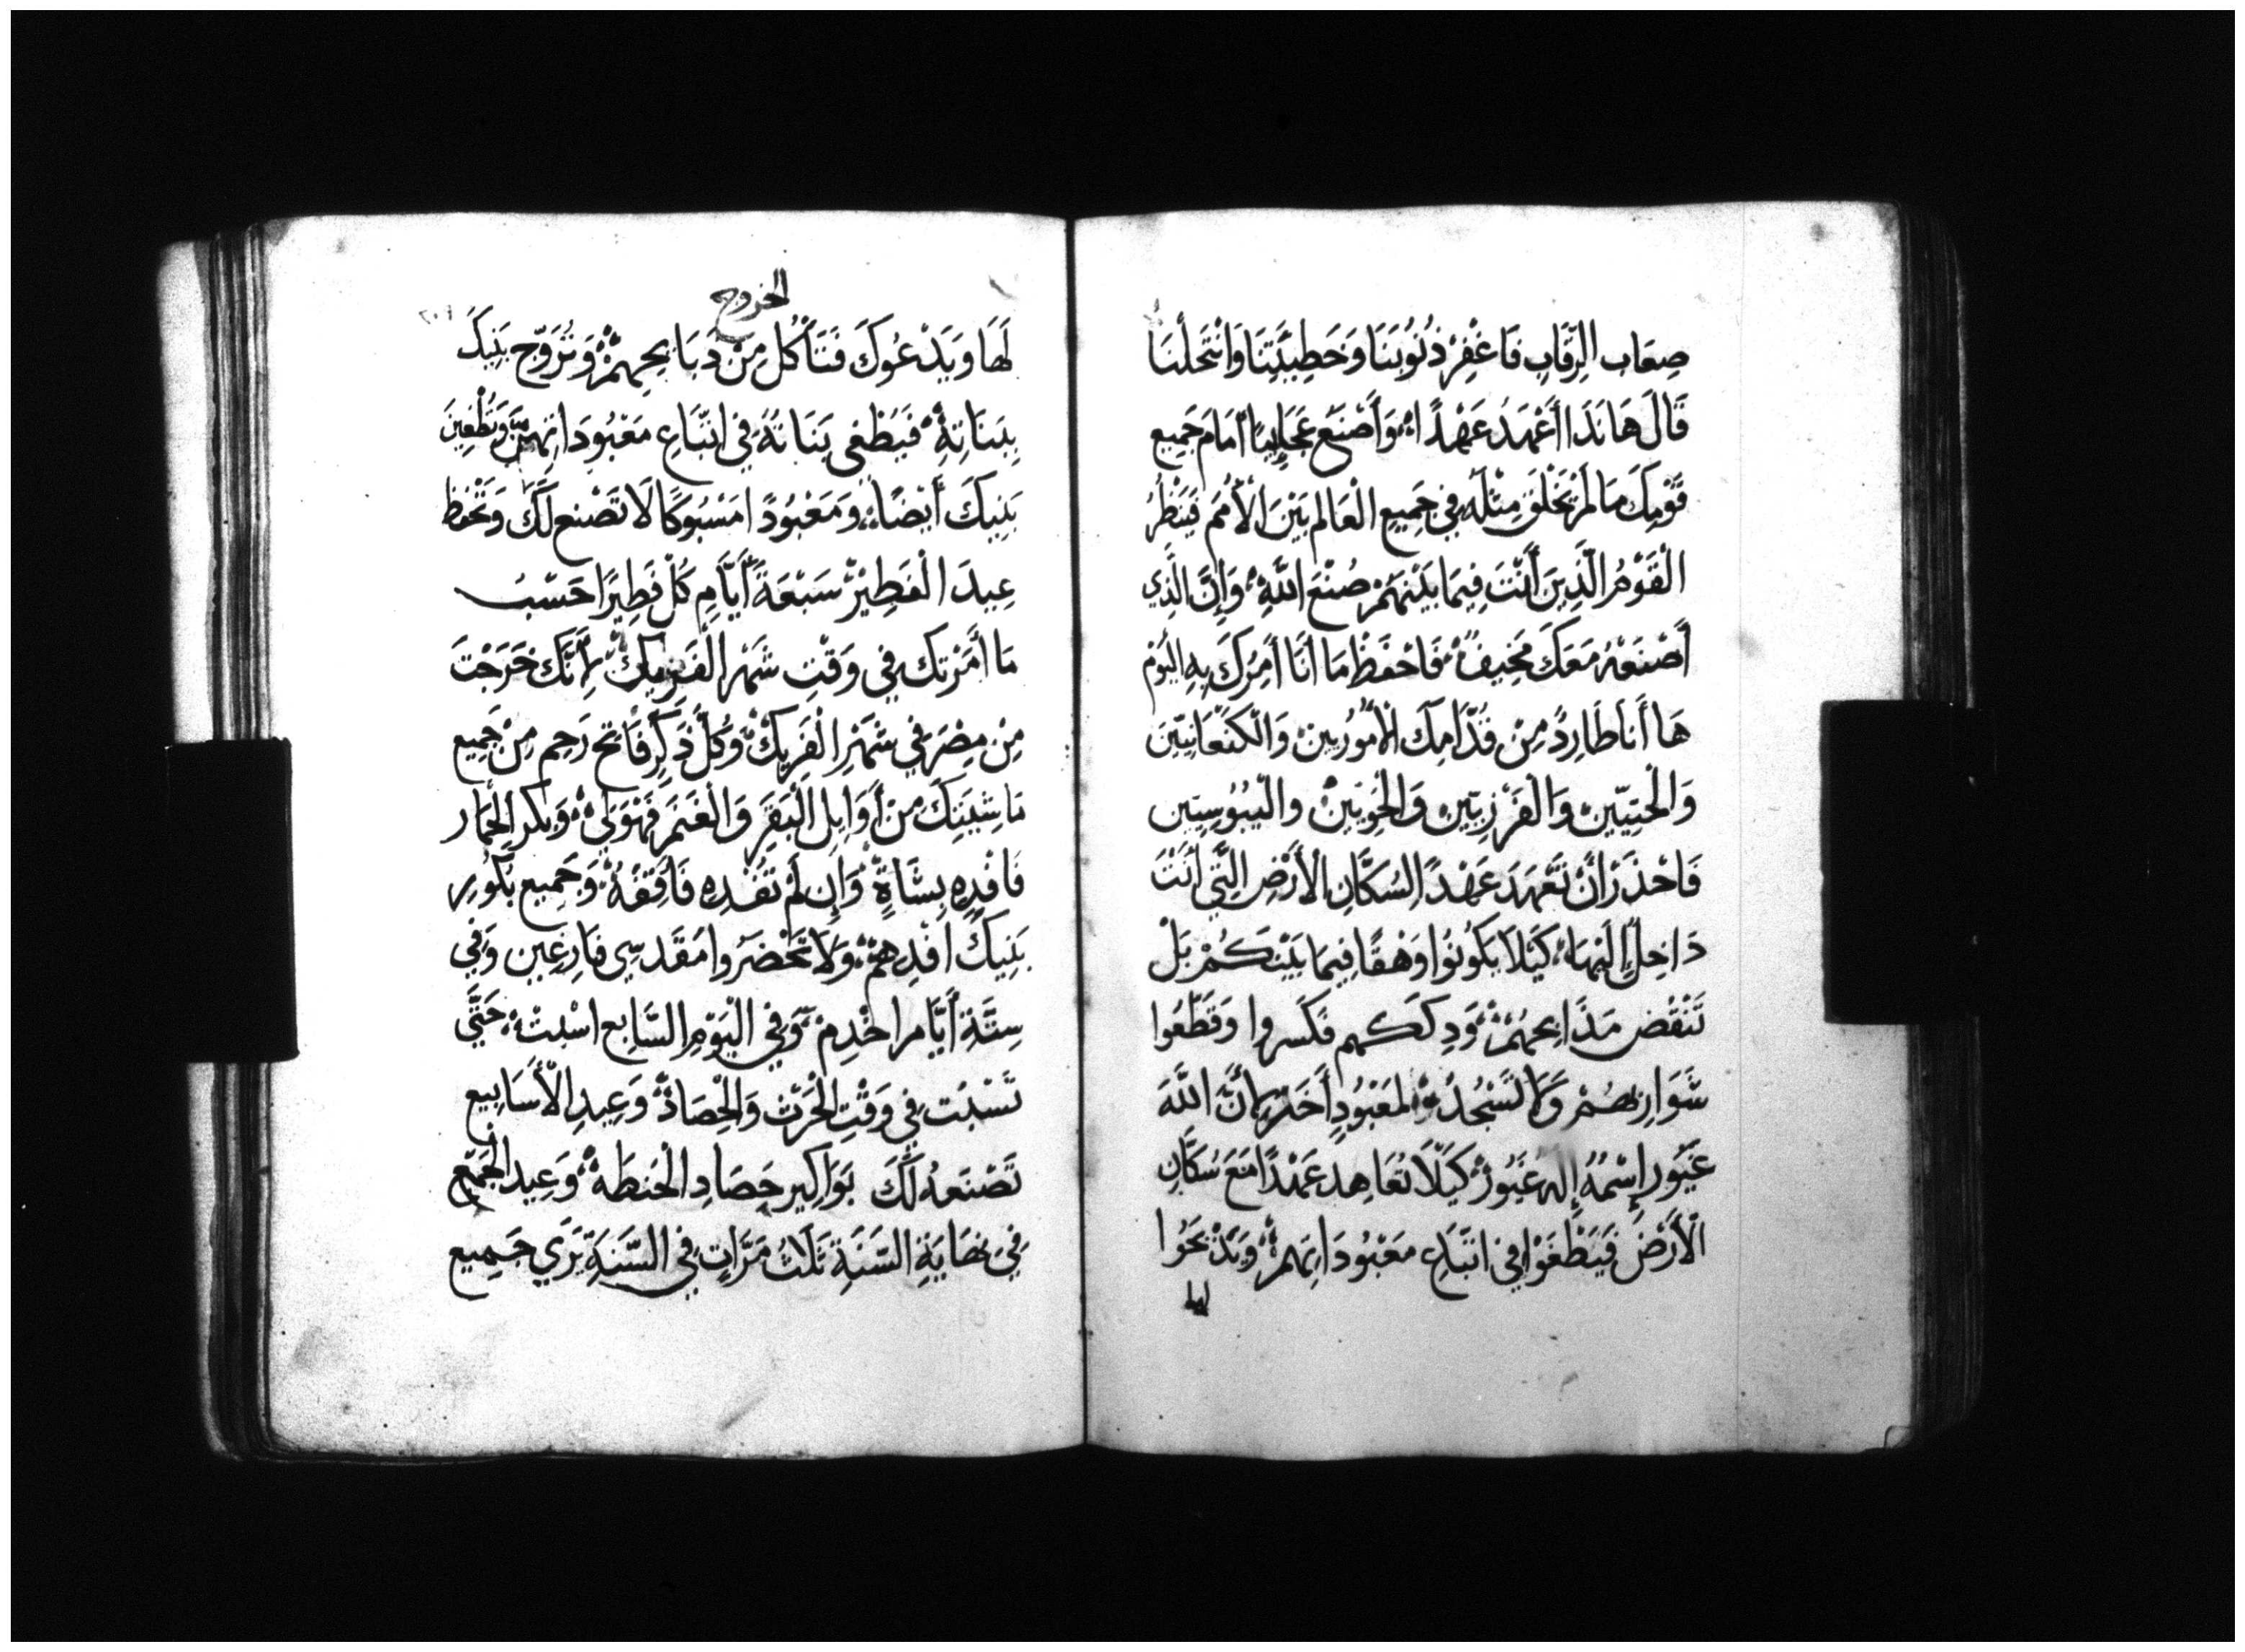 صِعَاب الرِّقَابِ فَاغْفِرْ ذُنُوبَنَا وَخَطِيئَتِنَا وَانْتَحَلْنَا
قَالَ هَانَذَا أَعْهَدُ عَهْدًا وَأَصْنَعُ عَجَايِبًا أَمَامَ جَمِيع
قَوْمِكَ مَا لَمْ يُخْلَق مِثْلَه فِي جَمِيعِ الْعَالَم بَيْنَ الْأُمَم فَيَنْظُرُ
الْقَوْمُ الَّذِينَ أَنْتَ فِيمَا بَيْنِهَمْ صُنْعَ اللَّهِ وَإِنَّ الَّذِي
أَصْنَعُهُ مَعَكَ مَخِيفٌ فَاحْفَظْ مَا أَنَا أمِرُكَ بِهِ الْيَوْم
هَا أَنَا طَارِدٌ مِنْ قُدَّامِكَ الْأَمُورِيينْ وَالْكَنْعَانِيّينَ
وَالْحِتِيّينْ وَالْفَرْزِيّينْ وَالْحُوِيّينْ وَالْيَبُوسِيّين
فَاحْذَرْ أَنْ تَعْهَدَ عَهْدًا لِسُكَّانِ الْأَرْضِ الَّتِي أَنْتَ
دَاخِلٌ إِلَيْهَا كَيْلَا يَكُونُوا وَهْقًا فِيمَا بَيْنَكُمْ بَلْ
تَنْقُض مَذَابِحَهُمْ وَدِكَكَهم فَكَسروا وَقَطّعُوا
سَوَارِيَهُمْ وَلَا تَسْجُدُوْا لِمَعْبُودٍ أَخَرْ لِأَنَّ اللَّهَ
غَيُّور إِسْمُهُ إِلَهٌ غَيُورٌ كَيْلَا تُعَاهِد عَهْدًا مَعَ سُكَّانِ
الْأَرْضَ فَيَطْغَوْا فِي اتّبَاعِ مَعْبُودَاتِهِمْ وَيَذْبَحُوا
لها
الخروج
لَهَا وَيَدْعُوكَ فَتَأْكُل مِنْ ذَبَايِحِهِمْ وَتُزَوّج بَنِيكَ
بِبَنَاتِهِ فَيَطْغَى بَنَاتَهُ فِي اتّبَاعِ مَعْبُودَاتِهِمْ وَتُطْغِينَ
بَنِيكَ أَيْضًا وَمَعْبُودًا مَسْبُوكًا لَا تَصْنَع لَكَ وَتَحْفَظ
عِيدَ الْفَطِيرْ سَبْعَةَ أَيَّامٍ كُلْ فَطِيرًا حَسْبُ
مَا أَمَرْتك فِي وَقْتِ شَهْر الْفَرِيكْ لِأَنَّكَ خَرَجْتَ
مِنْ مِصْرَ فِي شَهْرِ الْفَرِيكْ وَكُلّ ذَكَرٍ فَاتح رَحِم مِنْ جَمِيع
مَاشِيَتِكَ مِنْ أَوَايِل الْبَقَرِ وَالْغَنَم فَهُوَ لِي وَبِكْر الْحِمَار
فَافْدِهِ بِشَاةٍ وَإِن لَمْ تَفْدِهِ فَاقِفْهُ وَجَمِيع بُكُور
بَنِيكَ افْدِهِمْ وَلَا تَحْضَرُوا مَقْدَسِي فَارِغِين وَفِي
سِتَّةِ أَيَّام اخْدِمْ وَفِي الْيَوْمِ السَّابِع اسْبِتْ حَتَّى
تَسْبُت فِي وَقْتِ الْحَرْث وَالْحِصَادْ وَعِيدِ الْأَسَابِيع
تَصْنَعهُ لَكَ بَوَاكِير حِصَادِ الْحَنطَةْ وَعِيد الْجَمْعِ
فِي نِهَايَةِ السَّنَةِ ثَلَثُ مَرَّاتٍ فِي السَّنَةِ يَرَى جَمِيع